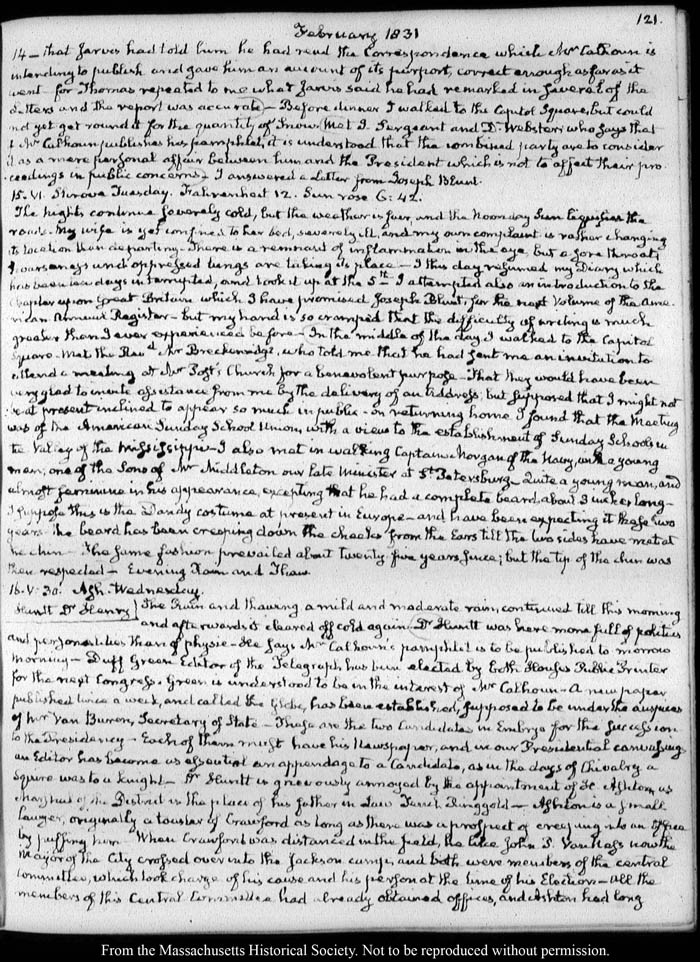 121.
February 1831
14 — that Jarvis had told him he had read the Correspondence which Mr Calhoun is
intending to publish and gave him an account of its purport, correct enough as far as it
went — for Thomas repeated to me what Jarvis said he had remarked in several of the
Letters and the report was accurate — Before dinner I walked to the Capitol Square, but could
not yet get round it for the quantity of Snow. Met J. Sergeant and D. Webster, who says that
if Mr Calhoun publishes his pamphlet, it is understood that the combined party are to consider
it as a mere personal affair between him and the President which is not to affect their pro-
ceedings in public concerns — I answered a Letter from Joseph Blunt.
15. VI. Shrove Tuesday. Fahrenheit 12. Sun rose 6:42.
The nights continue severely cold, but the weather is fair, and the Noon day Sun liquefies the
roads. My wife is yet confined to her bed, severely ill, and my own complaint is rather changing
its location than departing — There is a remnant of inflammation in the eye, but a sore throat,
hoarseness and oppressed lungs are taking its place — I this day resumed my Diary which
has been ten days interrupted, and took it up at the 5th. I attempted also an introduction to the
Chapter upon Great Britain which I have promised Joseph Blunt, for the next Volume of the Ame-
rican Annual Register — but my hand is so cramped that the difficulty of writing is much
greater than I ever experienced before — In the middle of the day I walked to the Capitol
Square. Met the Revd Mr Breckenridge, who told me that he had sent me an invitation to
attend a meeting at Mr Post's Church for a benevolent purpose — That they would have been
very glad to invite assistance from me by the delivery of an Address, but supposed that I might not
be at present inclined to appear so much in public — on returning home I found that the Meeting
was of the American Sunday School Union, with a view to the establishment of Sunday Schools in
the Valley of the Mississippi — I also met in walking Captain Morgan of the Navy, with a young
man, one of the Sons of Mr Middleton our late Minister at St Petersburg — Quite a young man, and
almost feminine in his appearance, excepting that he had a complete beard, about 3 inches long —
I suppose this is the Dandy costume at present in Europe — and have been expecting it these two
years. The beard has been creeping down the cheeks from the Ears till the two sides have met at
the chin — The same fashion prevailed about twenty five years since; but the tip of the chin was
then respected — Evening Rain and Thaw.
16. V:30. Ash. Wednesday.
Huntt Dr Henry
The Rain and thawing a mild and moderate rain, continued till this morning
and afterwards it cleared off cold again. Dr Huntt was here more full of politics
and personalities than of physic — He says Mr Calhoun's pamphlet is to be published to morrow
morning — Duff Green Editor of the Telegraph has been elected by both Houses Public Printer
for the next Congress. Green is understood to be in the interest of Mr Calhoun — A new paper
published twice a week, and called the Globe, has been established, supposed to be under the auspices
of Mr Van Buren, Secretary of State — These are the two Candidates in Embryo for the succession
to the Presidency — Each of them must have his Newspaper, and in our Presidential canvassing
an Editor has become as essential an appendage to a Candidate, as in the days of Chivalry a
Squire was to a knight — Dr Huntt is grievously annoyed by the appointment of H. Ashton, as
Marshal of the District in the place of his father in Law Tench Ringgold — Ashton is a small
Lawyer, originally a toaster of Crawford as long as there was a prospect of creeping into an office
by puffing him — When Crawford was distanced in the field, he like John P. Van Ness now the
Mayor of the City crossed over into the Jackson camp, and both were members of the central
Committee, which took charge of his cause and his person at the time of his Election — All the
members of this Central Committee had already obtained offices, and Ashton had long
From the Massachusetts Historical Society. Not to be reproduced without permission.